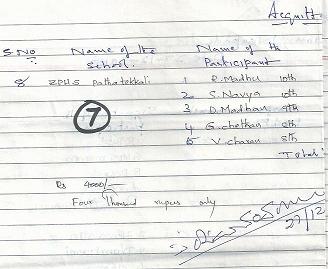 Acquitt
S.No Name of the School. Name of th Participant
8 ZPHS Pathatekkali 1 R.Madhu 10th
2 S.Navya 10th
7 3 D.Madhan 9th
4 G.chethan 9th
5 V.charan 8th
Total:
Rs 4000/-
Four Thousand rupees only
27/12